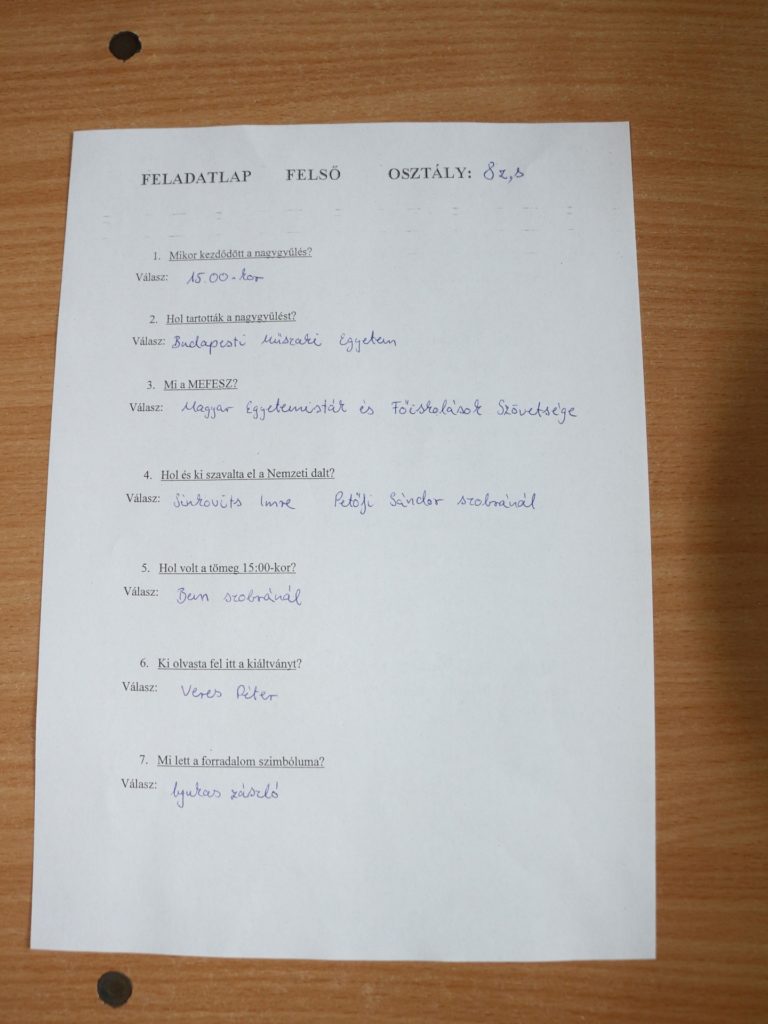 FELADATLAP FELSŐ OSZTÁLY: 8z,s
1. Mikor kezdődött a nagygyűlés?
Válasz: 15.00-kor
2. Hol tartották a nagygyűlést?
Válasz: Budapesti Műszaki Egyetem
3. Mi a MEFESZ?
Válasz: Magyar Egyetemisták és Főiskolások Szövetsége
4. Hol és ki szavalta el a Nemzeti dalt?
Válasz: Sinkovits Imre Petőfi Sándor szobránál
5. Hol volt a tömeg 15:00-kor?
Válasz: Bem szobránál
6. Ki olvasta fel itt a kiáltványt?
Válasz: Veres Péter
7. Mi lett a forradalom szimbóluma?
Válasz: lyukas zászló